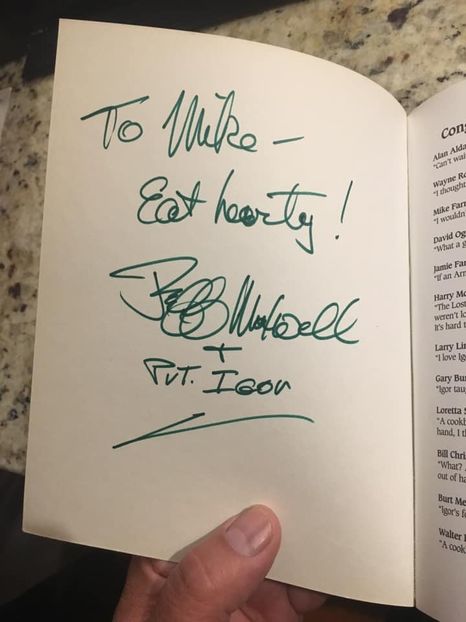 To Mike –
Eat hearty!
Jeff Maxwell
+
Pvt. Igor
Con
Alan Alda
"Can't wai
Wayne Ro
"I thought
Mike Farr
"I wouldn
David Og
"What a g
Jamie Far
"If an Arm
Harry Mo
"The Lost
weren't lo
It's hard t
Larry Lin
"I love Ig
Gary Bur
"Igor tau
Loretta S
"A cookb
hand, I th
Bill Chri
"What?
out of ha
Burt Me
"Igor's fo
Walter
"A cook